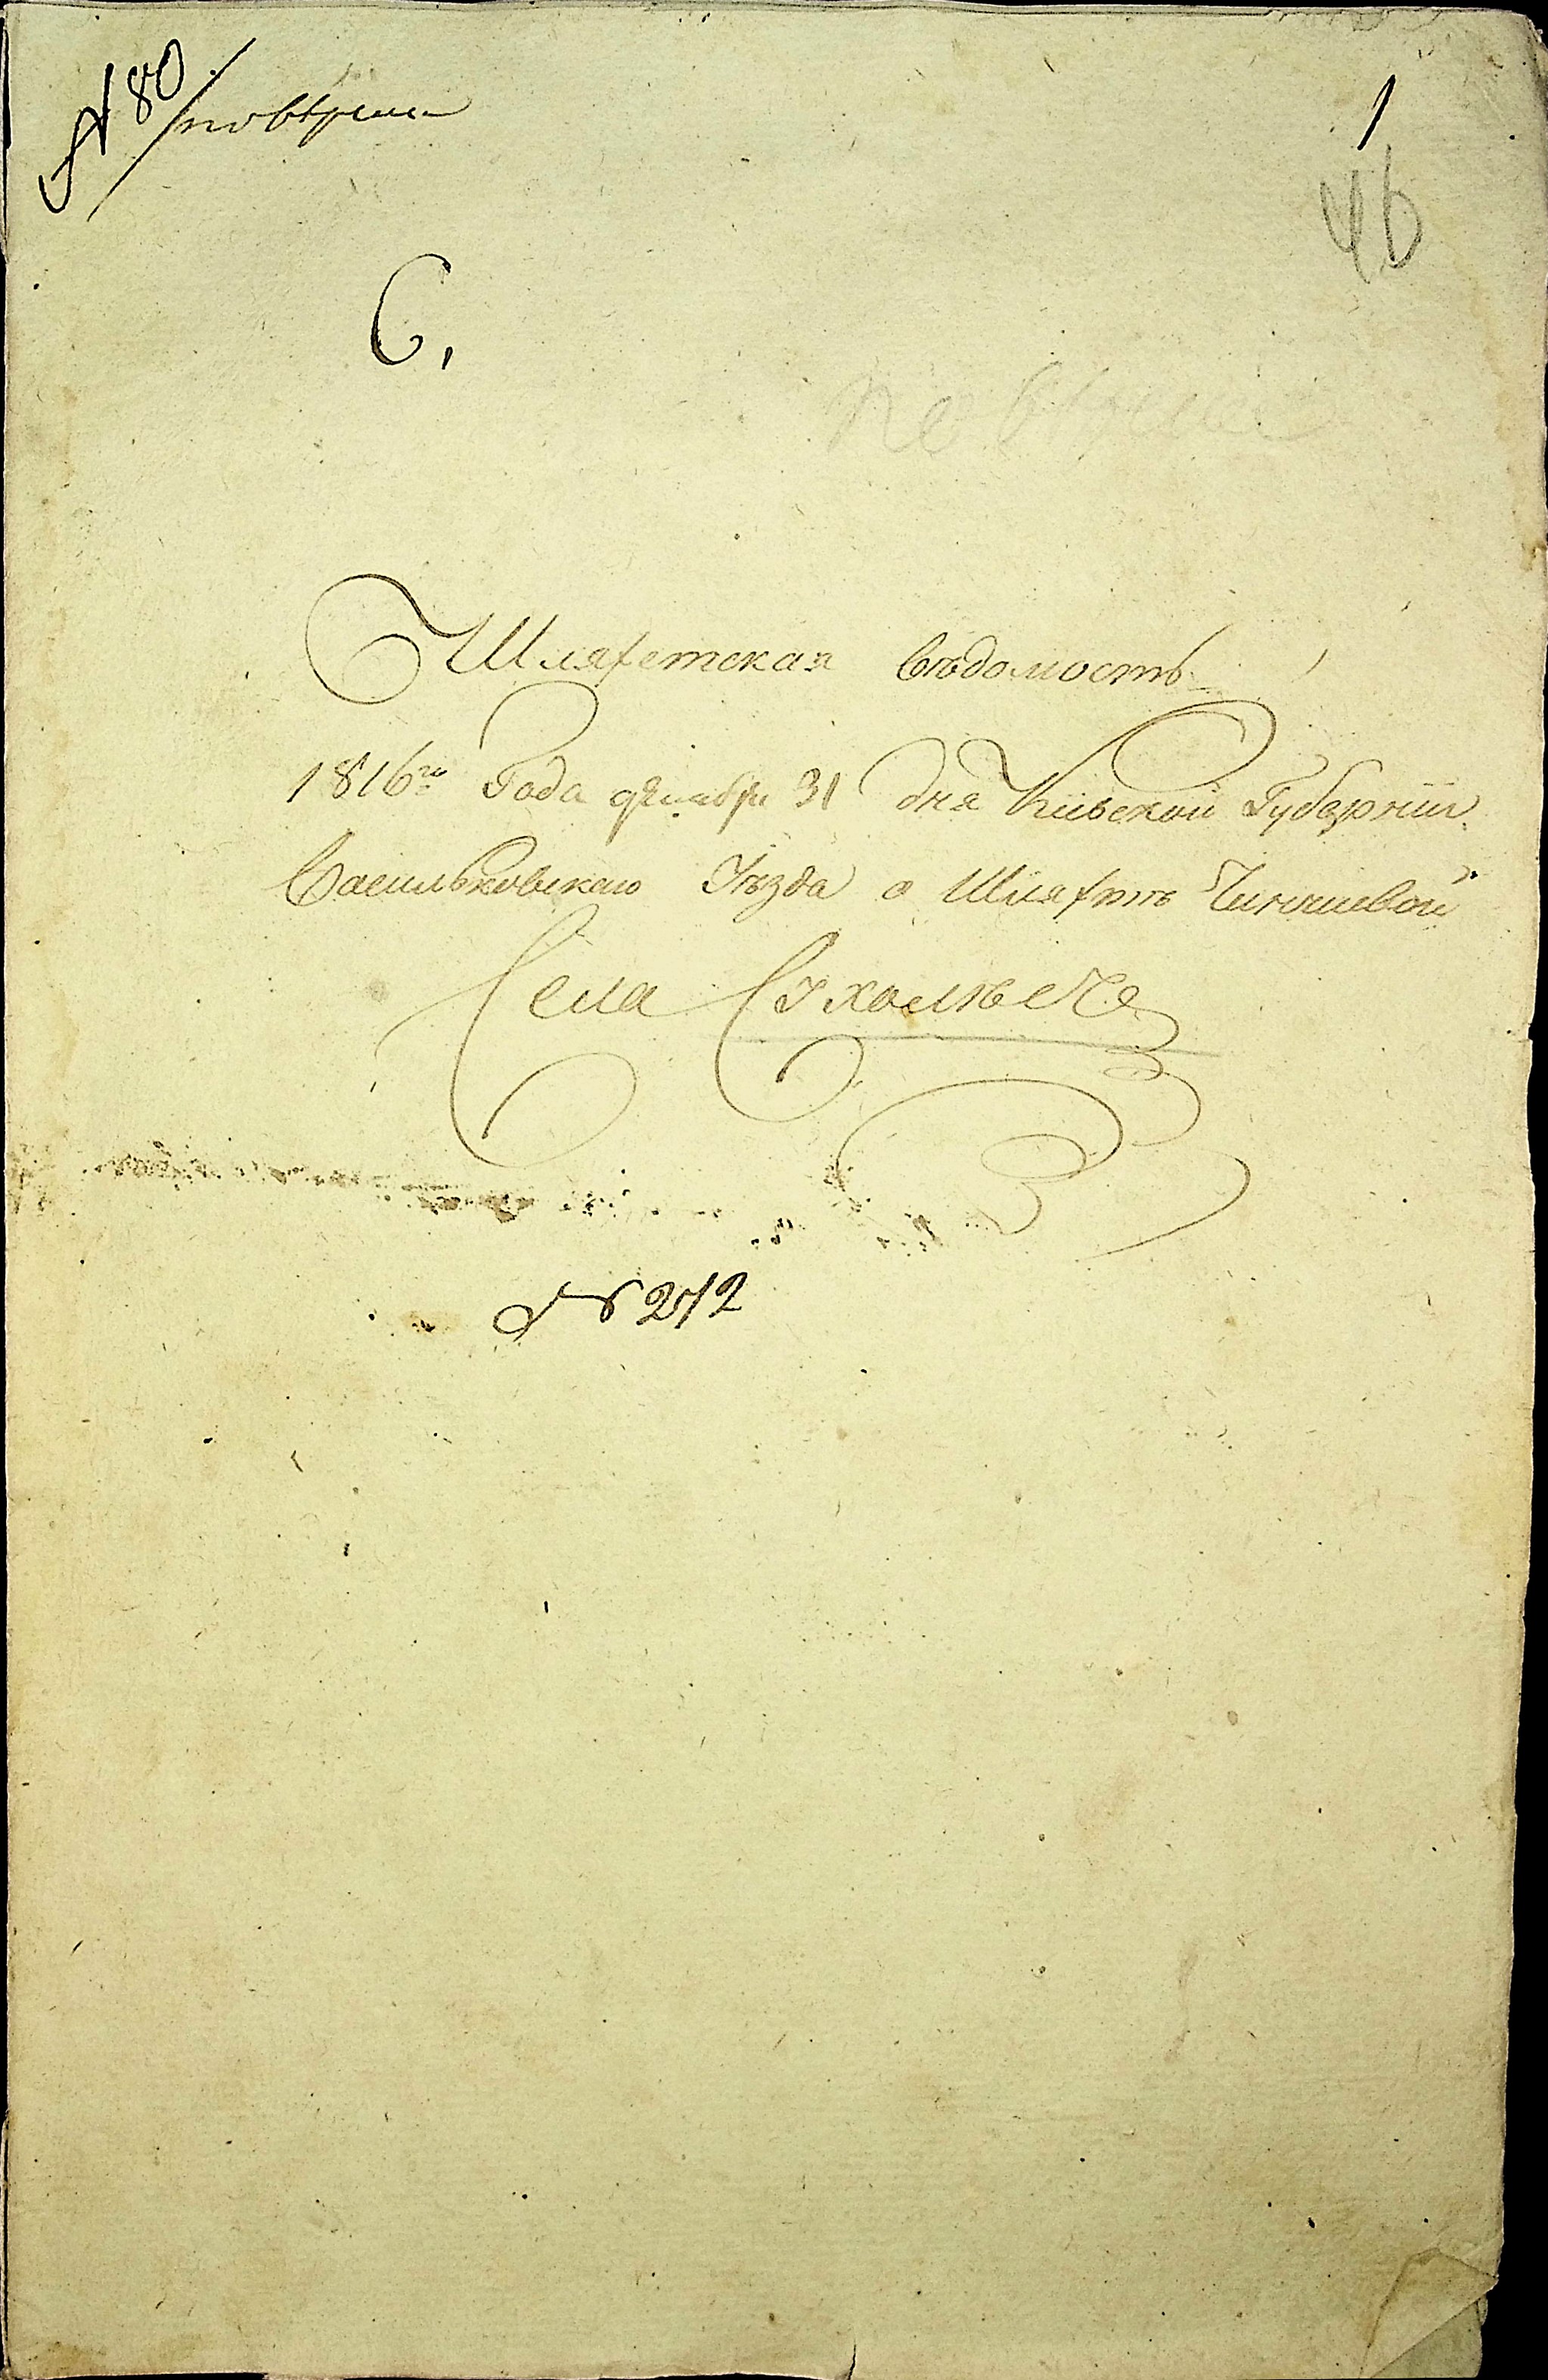 № 80.
повѣрена
1
46
С.
повѣрена
Шляхетская вѣдомость
1816го Года декабря 31 дня Кіевской Губерніи
Васильковскаго Уѣзда о Шляхтѣ Чиншевой
Села Сухолѣсъ
№ 212